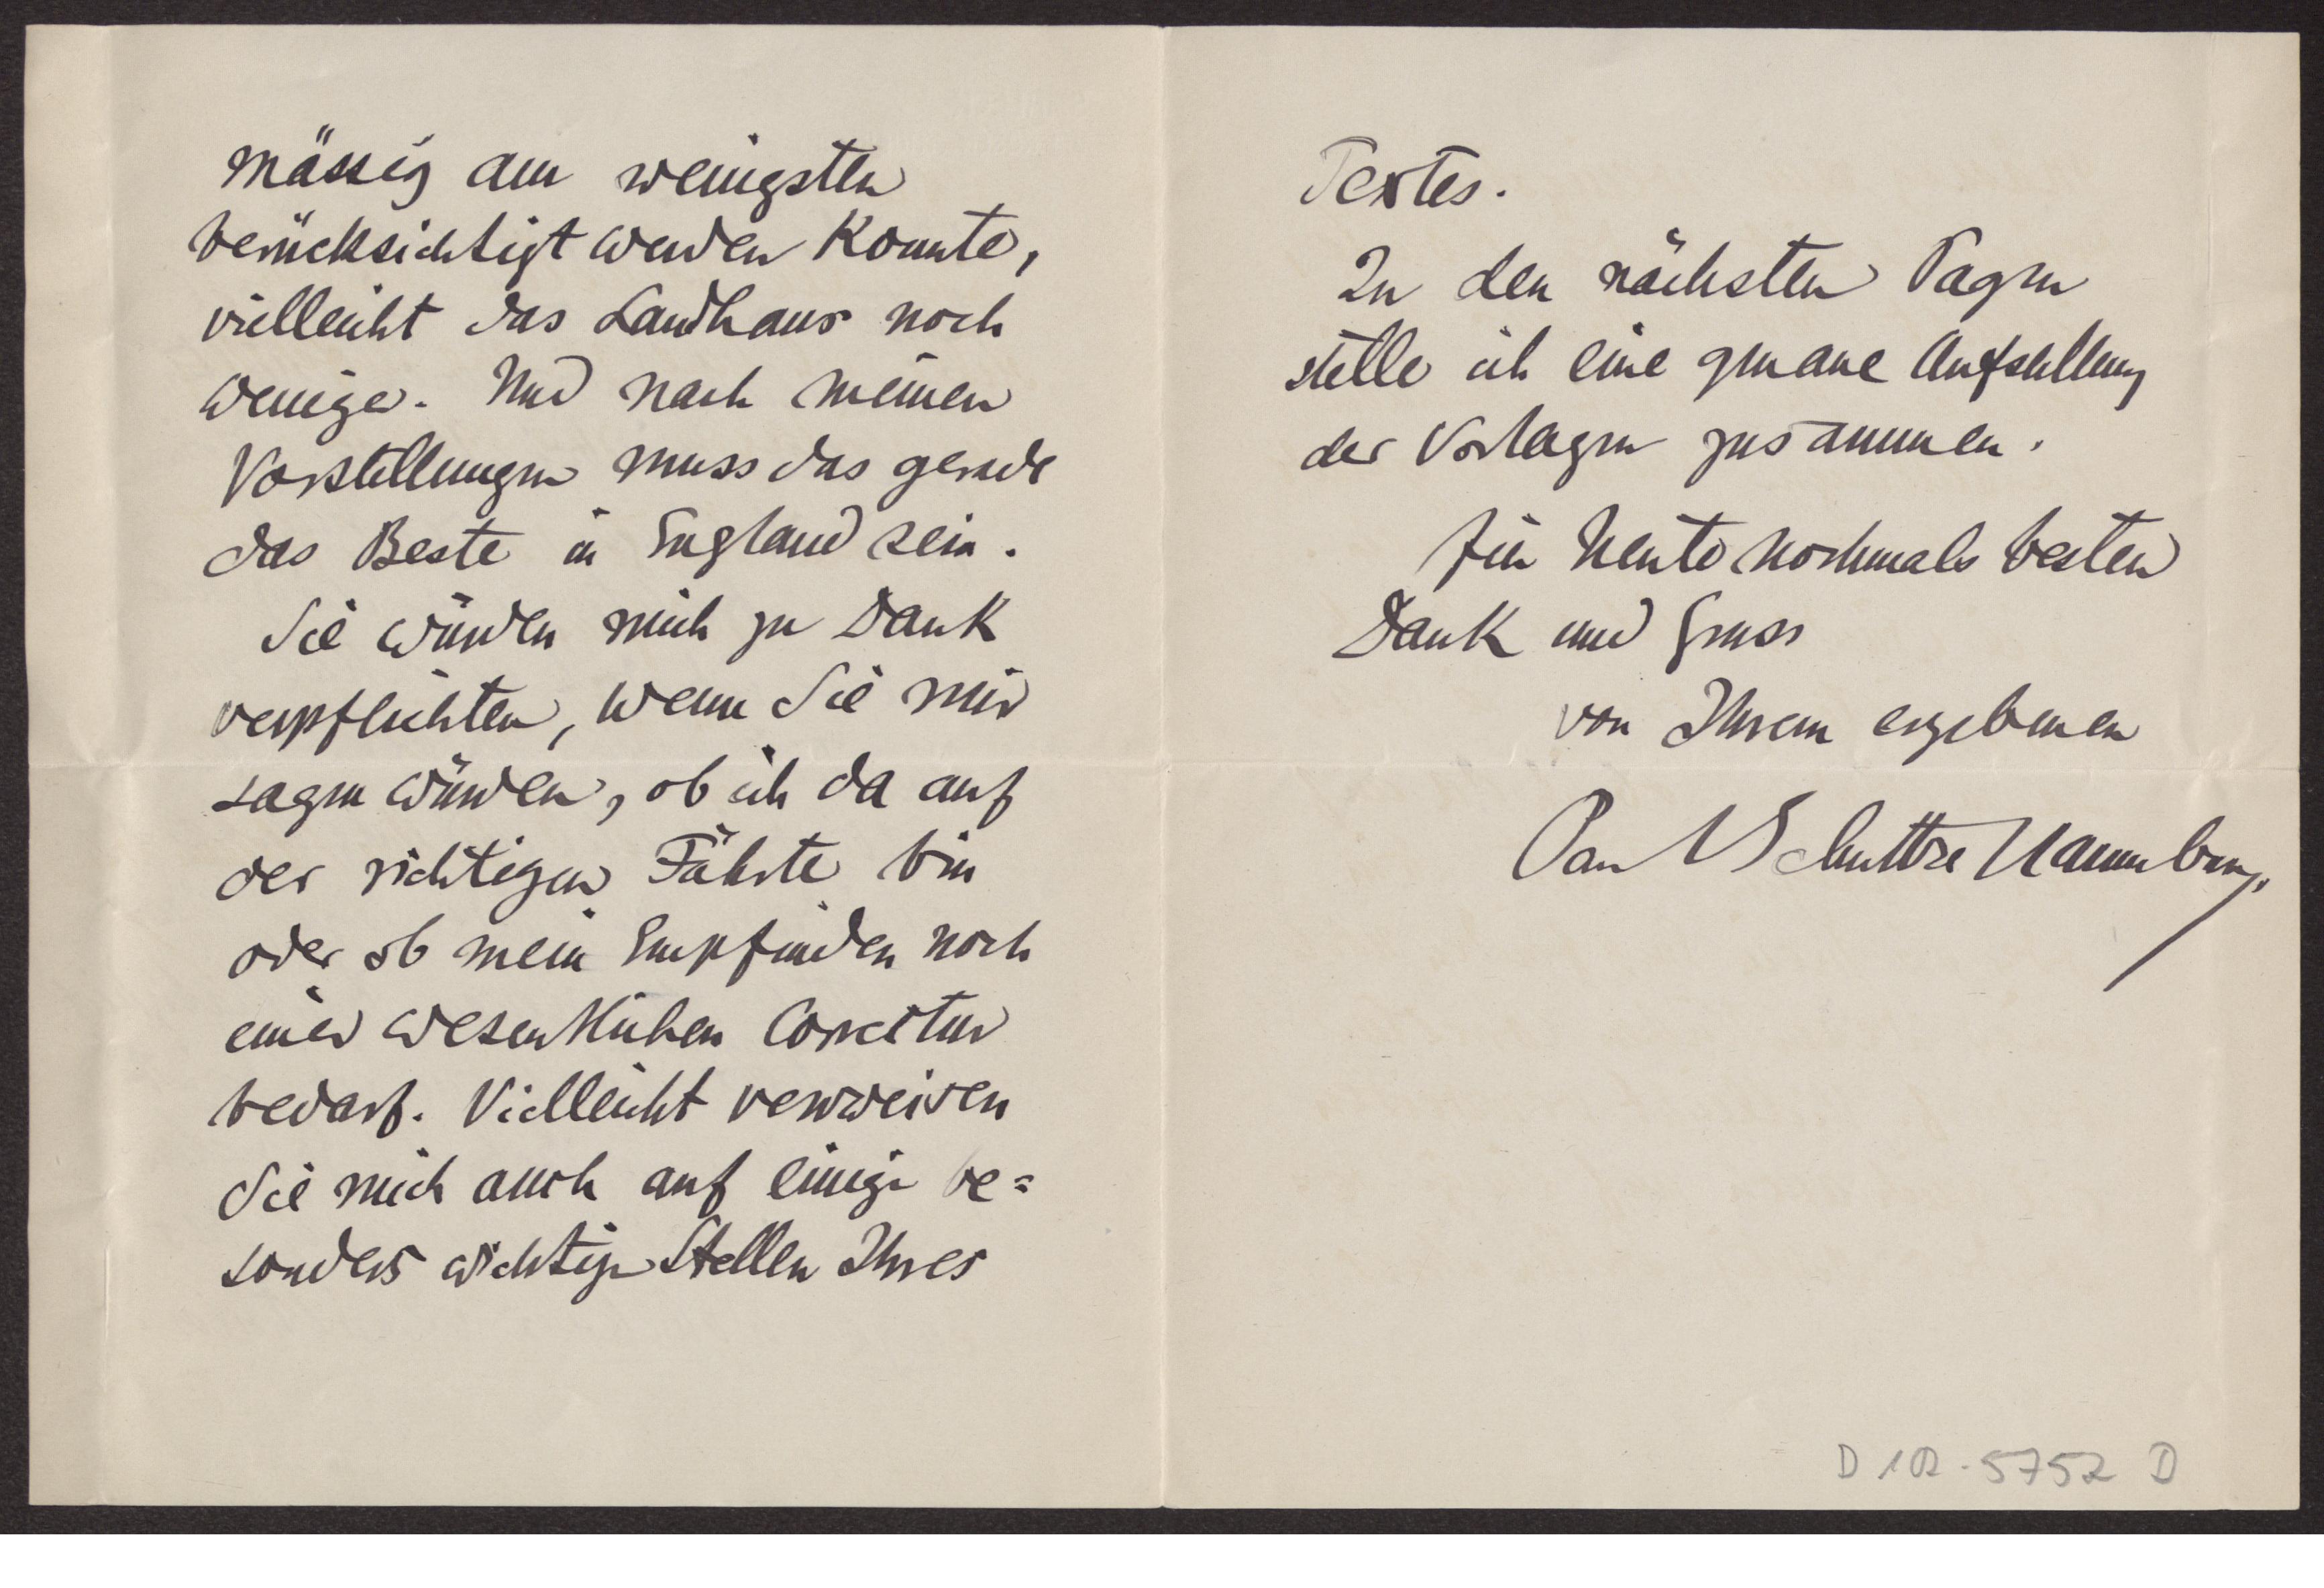 mässig am wenigsten
berücksichtigt werden konnte,
vielleicht das Landhaus noch
weniger. Und nach meinen
Vorstellungen muss das gerade
das Beste in England sein.
Sie würden mich zu Dank
verpflichten, wenn Sie mir
sagen würden, ob ich da auf
der richtigen Fährte bin
oder ob mein Empfinden noch
einer wesentlichen Correctur
bedarf. Vielleicht verweisen
Sie mich auch auf einige be=
sonders wichtige Stellen Ihres
Textes.
In den nächsten Tagen
stelle ich eine genaue Aufstellung
der Vorlagen zusammen.
Für heute nochmals besten
Dank und Gruss
von Ihrem ergebenen
Paul Schultze Naumburg.
D 102-5752 D